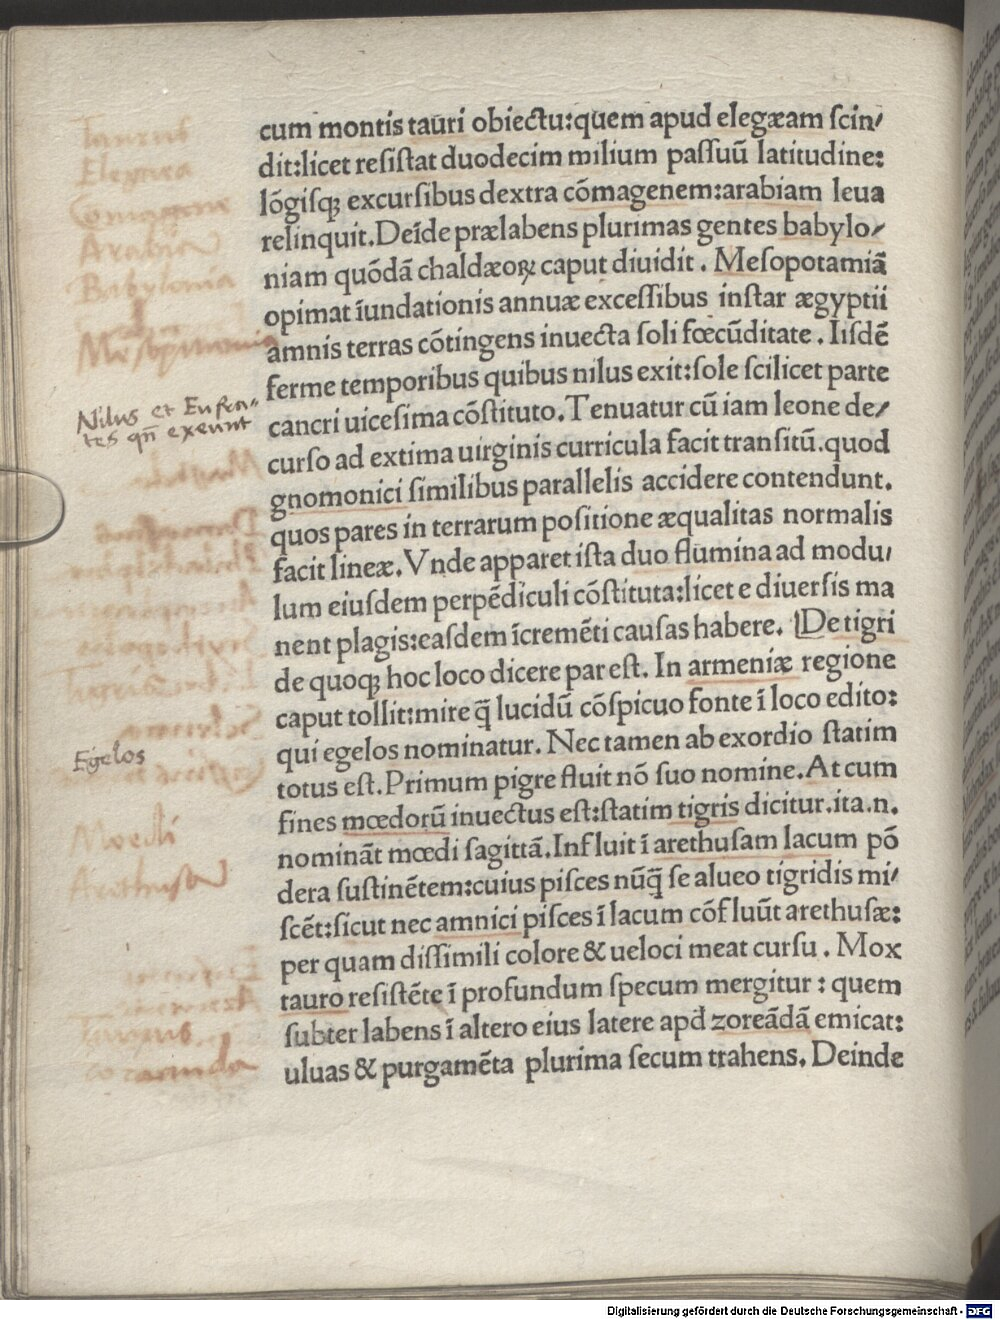 Taurus
Elegæa
Comagene
Arabia
Babylonia
Nilus et Eufra-
tes qñ exeunt
Egelos
Moedi
Arethusa
Taurus
zoroanda
cum montis tauri obiectu:quem apud elegæam ſcin/
dit:licet reſiſtat duodecim milium paſſuū latitudine:
lōgiſqꝫ excurſibus dextra cōmagenem:arabiam leua
relinquit.Deīde prælabens plurimas gentes babylo/
niam quōdā chaldæoꝝ caput diuidit . Meſopotamiā
opimat īundationis annuæ exceſſibus inſtar ægyptii
amnis terras cōtingens inuecta ſoli fœcūditate . Iiſdē
ferme temporibus quibus nilus exit:ſole ſcilicet parte
cancri uiceſima cōſtituto.Tenuatur cū iam leone de/
curſo ad extima uirginis curricula facit tranſitū.quod
gnomonici ſimilibus parallelis accidere contendunt.
quos pares in terrarum poſitione æqualitas normalis
facit lineæ.Vnde apparet iſta duo flumina ad modu/
lum eiuſdem perpēdiculi cōſtituta:licet e diuerſis ma
nent plagis:eaſdem īcremēti cauſas habere. De tigri
de quoqꝫ hoc loco dicere par eſt. In armeniæ regione
caput tollit:mire q̄ lucidū cōſpicuo fonte ī loco edito:
qui egelos nominatur. Nec tamen ab exordio ſtatim
totus eſt.Primum pigre fluit nō ſuo nomine.At cum
fines mœdorū inuectus eſt:ſtatim tigris dicitur.ita.n.
nomināt mœdi ſagittā.Influit ī arethuſam lacum pō
dera ſuſtinētem:cuius piſces nūq̄ ſe alueo tigridis mi/
ſcēt:ſicut nec amnici piſces ī lacum cōfluūt arethuſæ:
per quam diſſimili colore & ueloci meat curſu . Mox
tauro reſiſtēte ī profundum ſpecum mergitur : quem
ſubter labens ī altero eius latere apd zoreādā emicat:
uluas & purgamēta plurima ſecum trahens. Deinde
Digitalisierung gefördert durch die Deutsche Forschungsgemeinschaft - DFG